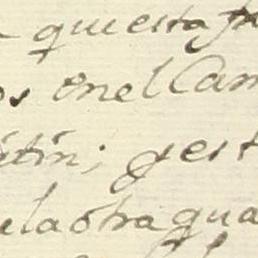 questa
os en el Cam
itin; y est
elaotra qua